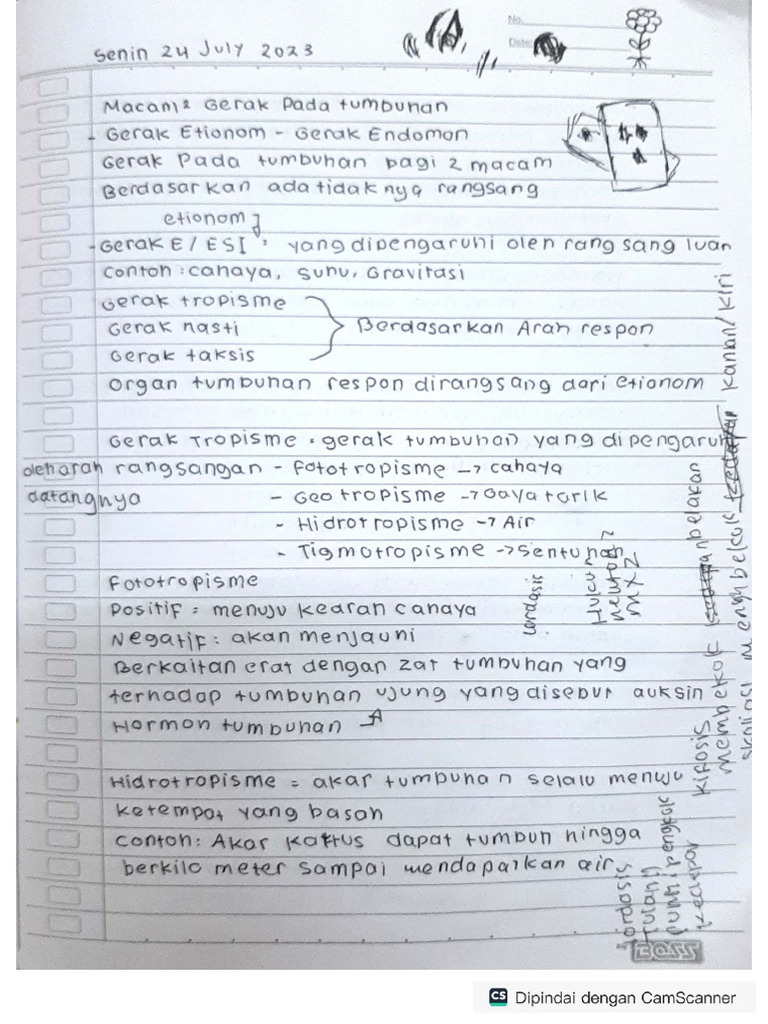 No.
Date:
Senin 24 July 2023
Macam² Gerak Pada tumbuhan
- Gerak Etionom - Gerak Endomon
Gerak Pada tumbuhan bagi 2 macam
Berdasarkan ada tidak nya rangsang
etionom
- Gerak E / ESI : yang dipengaruhi oleh rang sang luan
Contoh : cahaya, suhu, Gravitasi
Gerak tropisme
Gerak nasti
Gerak taksis
Berdasarkan Arah respon
Organ tumbuhan respon dirangsang dari etionom
Gerak Tropisme : gerak tumbuhan yang dipengaruhi
oleh arah rangsangan - Fototropisme -> cahaya
datangnya - Geotropisme -> Gaya tarik
- Hidrotropisme -> Air
- Tigmotropisme -> Sentuhan
Fototropisme
Positif = menuju kearah cahaya
Negatif : akan menjauhi
Berkaitan erat dengan zat tumbuhan yang
terhadap tumbuhan ujung yang disebut auksin
Hormon tumbuhan
Hidrotropisme = akar tumbuhan selalu menuju
ketempat yang basah
Contoh : Akar Kaktus dapat tumbuh hingga
berkilo meter sampai mendapatkan air
lordosis
Hukum
newton
mx2
kifosis membekok belakan
skoliosi mengbelkuk kanan/kiri
lordosis
Tulang
punk pengkok
kedepar
BOSS
CS Dipindai dengan CamScanner